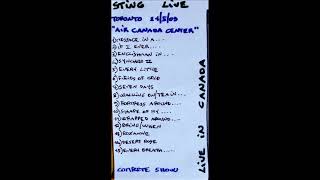 STING LIVE
TORONTO 24/5/05
"AIR CANADA CENTER"
1) MESSAGE IN A....
2) IF I EVER....
3) ENGLISHMAN IN....
4) SYNCHRO II
5) EVERY LITTLE
6) FIELDS OF GOLD
7) SEVEN DAYS
8) WALKING ON/TRAIN....
9) FORTRESS AROUND....
10) SHAPE OF MY....
11) WRAPPED AROUND....
12) BRING/WHEN
13) ROXANNE
14) DESERT ROSE
15) EVERY BREATH....
COMPLETE SHOW
LIVE IN CANADA